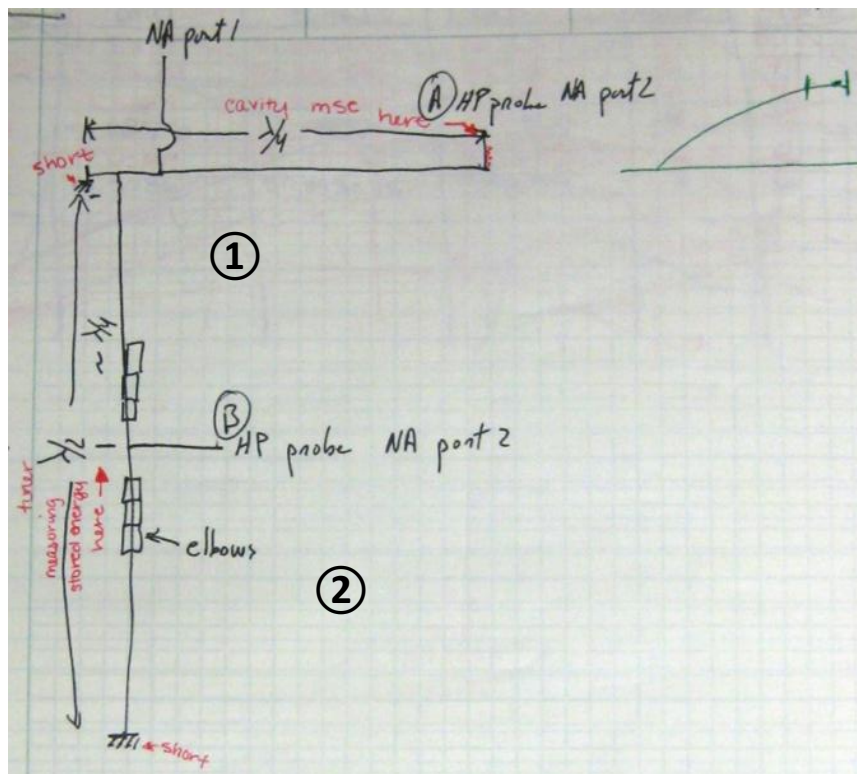 NA port 1
cavity mse
here
Ⓐ HP probe NA port 2
λ/4
short
①
λ/4
~
Ⓑ
HP probe NA port 2
λ/2
tuner
measuring
stored energy
here
elbows
②
short